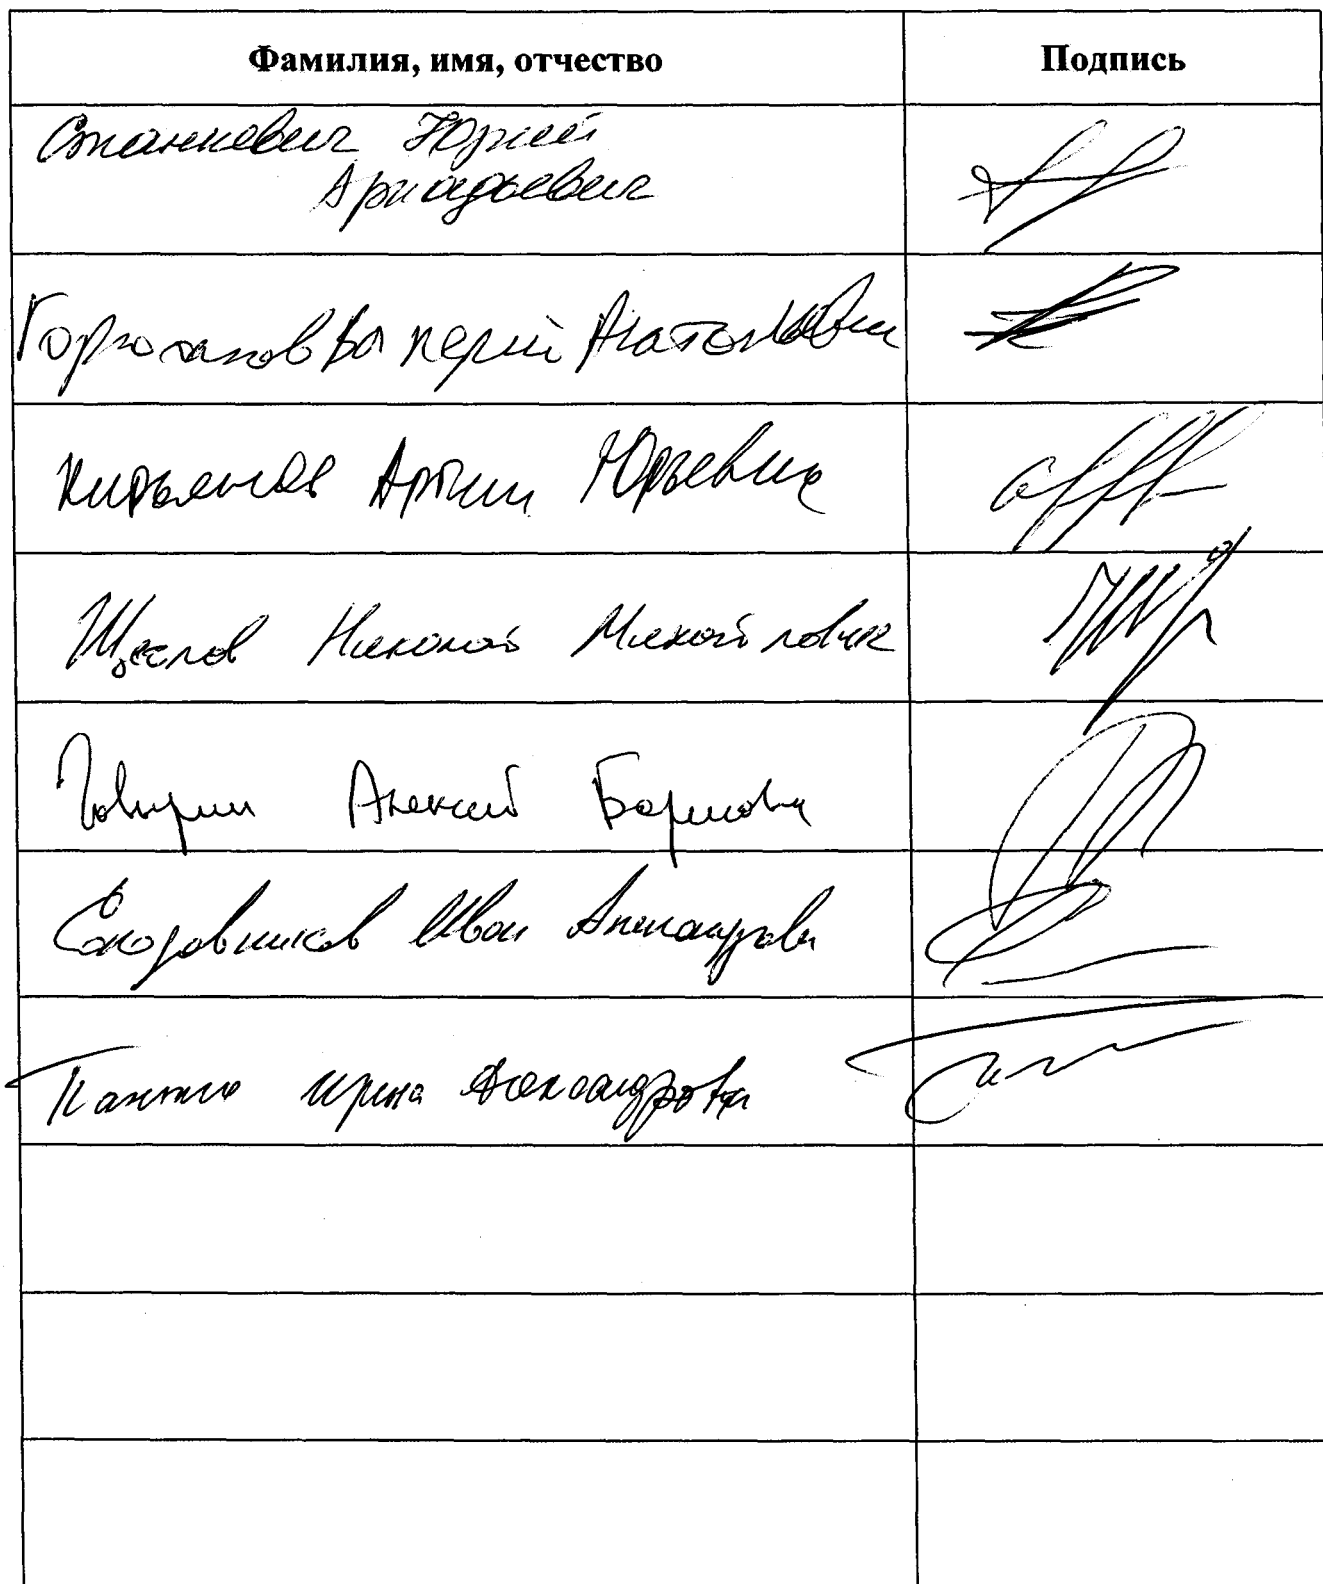 Фамилия, имя, отчество Подпись
Станкевич Юрий
Аркадьевич
Валерий Анатольевич
Кирьянов Артём Юрьевич
Щеглов Николай Михайлович
Говырин Алексей Борисович
Сковородников Иван Александрович
Панькина Ирина Александровна